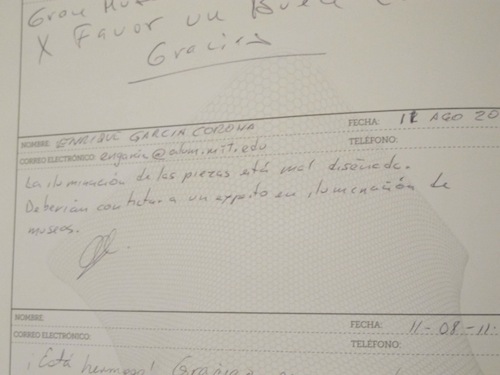 Gran
X Favor un Buen
Gracias
NOMBRE: ENRIQUE GARCIA CORONA FECHA: 11 AGO 20
CORREO ELECTRÓNICO: engarcia@alum.mit.edu TELÉFONO:
La iluminación de las piezas está mal diseñada.
Deberían contratar a un experto en iluminación de
museos.
NOMBRE: FECHA: 11-08-11
CORREO ELECTRÓNICO: TELÉFONO:
¡Está hermoso! Gracias